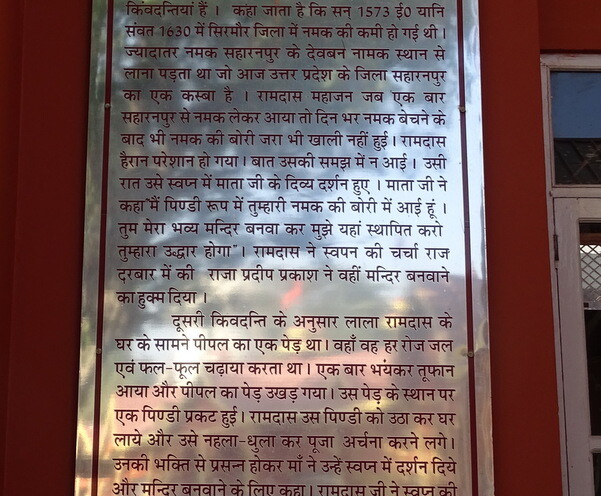 किंवदन्तियां हैं । कहा जाता है कि सन् 1573 ई0 यानि
संवत 1630 में सिरमौर जिला में नमक की कमी हो गई थी ।
ज्यादातर नमक सहारनपुर के देवबन नामक स्थान से
लाना पड़ता था जो आज उत्तर प्रदेश के जिला सहारनपुर
का एक कस्बा है । रामदास महाजन जब एक बार
सहारनपुर से नमक लेकर आया तो दिन भर नमक बेचने के
बाद भी नमक की बोरी जरा भी खाली नहीं हुई । रामदास
हैरान परेशान हो गया । बात उसकी समझ में न आई । उसी
रात उसे स्वप्न में माता जी के दिव्य दर्शन हुए । माता जी ने
कहा"मैं पिण्डी रूप में तुम्हारी नमक की बोरी में आई हूं ।
तुम मेरा भव्य मन्दिर बनवा कर मुझे यहां स्थापित करो
तुम्हारा उद्धार होगा" । रामदास ने स्वपन की चर्चा राज
दरबार में की राजा प्रदीप प्रकाश ने वहीं मन्दिर बनवाने
का हुक्म दिया ।
दूसरी किवदन्ति के अनुसार लाला रामदास के
घर के सामने पीपल का एक पेड़ था । वहाँ वह हर रोज जल
एवं फल-फूल चढ़ाया करता था । एक बार भयंकर तूफान
आया और पीपल का पेड़ उखड़ गया । उस पेड़ के स्थान पर
एक पिण्डी प्रकट हुई । रामदास उस पिण्डी को उठा कर घर
लाये और उसे नहला-धुला कर पूजा अर्चना करने लगे ।
उनकी भक्ति से प्रसन्न होकर माँ ने उन्हें स्वप्न में दर्शन दिये
और मन्दिर बनवाने के लिए कहा । रामदास जी ने स्वप्न की